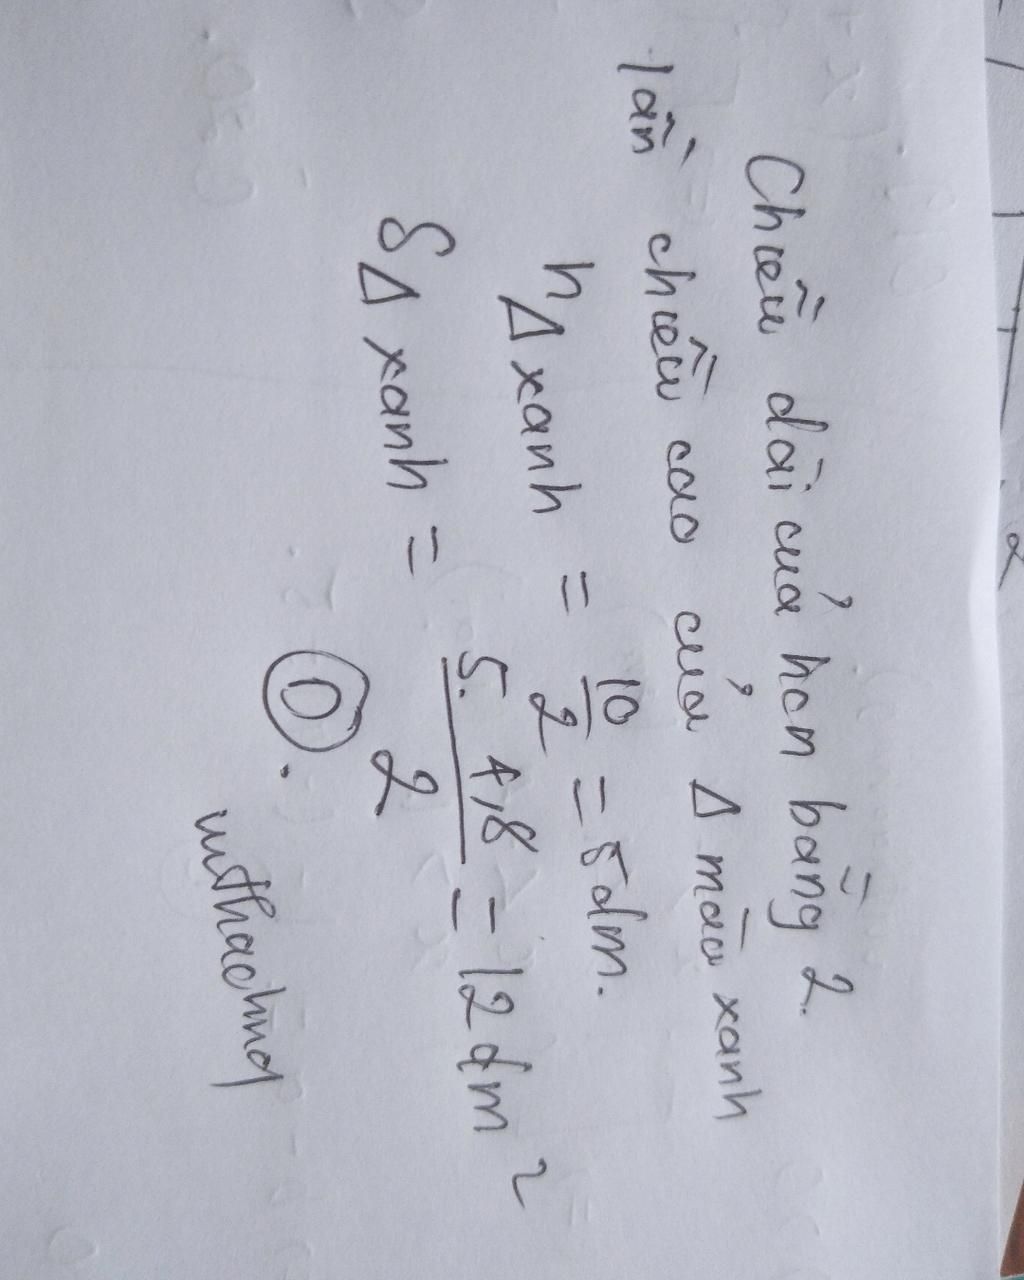 Chiều dài của hcn bằng 2
lần chiều cao của Δ màu xanh
hΔ xanh = 10/2 = 5dm.
SΔ xanh = 5.4,8/2 = 12dm²
D.